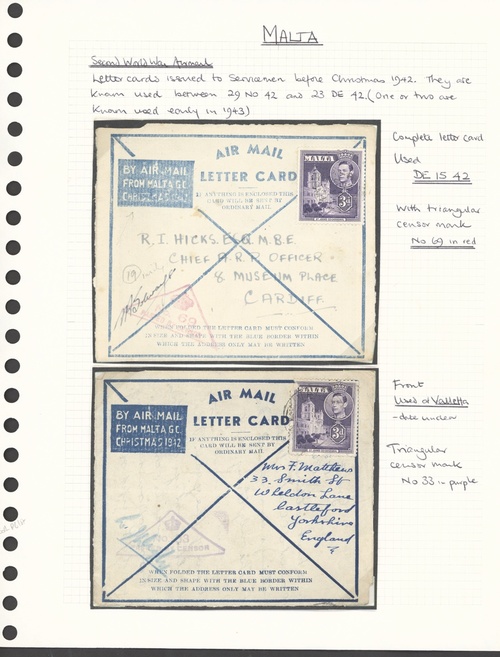 MALTA
Second World War Airmail
Letter cards issued to Servicemen before Christmas 1942. They are
known used between 29 NO 42 and 23 DE 42. (One or two are
known used early in 1943)
Complete letter card
Used
DE 15 42
With triangular
censor mark
No 69 in red
AIR MAIL
LETTER CARD
BY AIR MAIL
FROM MALTA G.C.
CHRISTMAS 1942
IF ANYTHING IS ENCLOSED THIS
CARD WILL BE SENT BY
ORDINARY MAIL
MALTA
3d
R.I. HICKS. ESQ. M.B.E.
CHIEF A.R.P. OFFICER
8 MUSEUM PLACE
CARDIFF
69
WHEN FOLDED THE LETTER CARD MUST CONFORM
IN SIZE AND SHAPE WITH THE BLUE BORDER WITHIN
WHICH THE ADDRESS ONLY MAY BE WRITTEN
Front
Used at Valletta
- date unclear
Triangular
censor mark
No 33 in purple
AIR MAIL
LETTER CARD
BY AIR MAIL
FROM MALTA G.C.
CHRISTMAS 1942
IF ANYTHING IS ENCLOSED THIS
CARD WILL BE SENT BY
ORDINARY MAIL
MALTA
3d
Mrs F. Matthews
33. Smith St
Wheldon Lane
Castleford
Yorkshire
England
CENSOR
WHEN FOLDED THE LETTER CARD MUST CONFORM
IN SIZE AND SHAPE WITH THE BLUE BORDER WITHIN
WHICH THE ADDRESS ONLY MAY BE WRITTEN